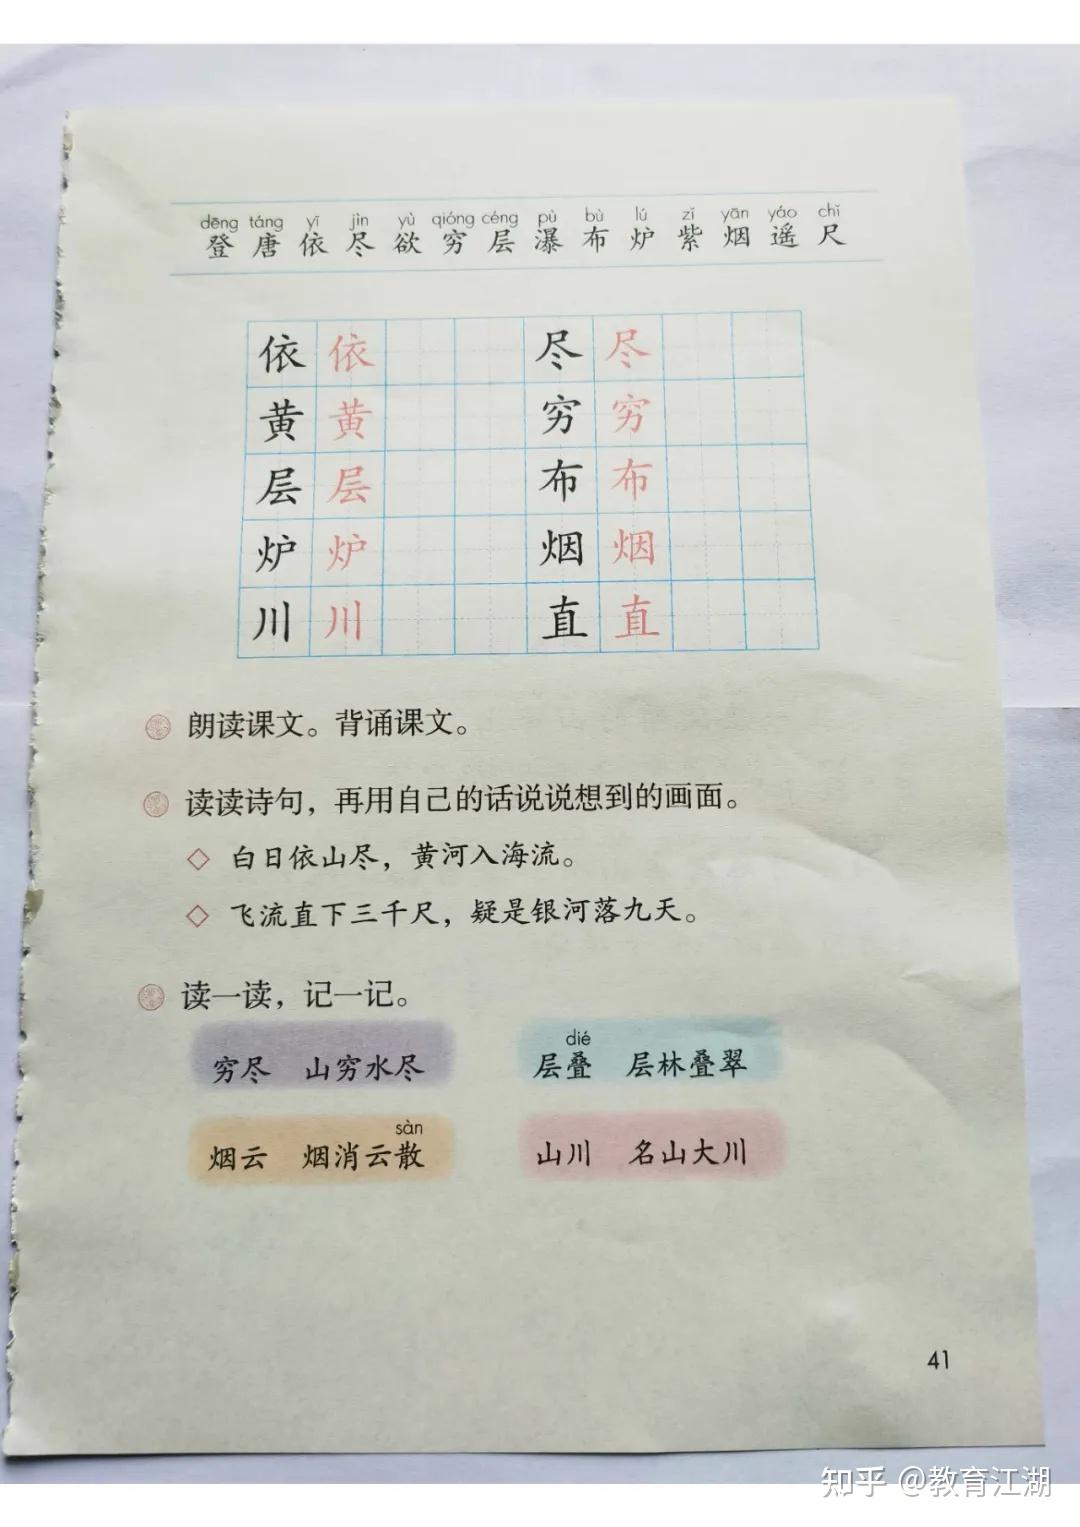 dēng táng yī jìn yù qióng céng pù bù lú zǐ yān yáo chǐ
登 唐 依 尽 欲 穷 层 瀑 布 炉 紫 烟 遥 尺
依 依 尽 尽
黄 黄 穷 穷
层 层 布 布
炉 炉 烟 烟
川 川 直 直
朗读课文。背诵课文。
读读诗句，再用自己的话说说想到的画面。
◇ 白日依山尽，黄河入海流。
◇ 飞流直下三千尺，疑是银河落九天。
读一读，记一记。
dié
穷尽 山穷水尽 层叠 层林叠翠
sàn
烟云 烟消云散 山川 名山大川
41
知乎 @教育江湖